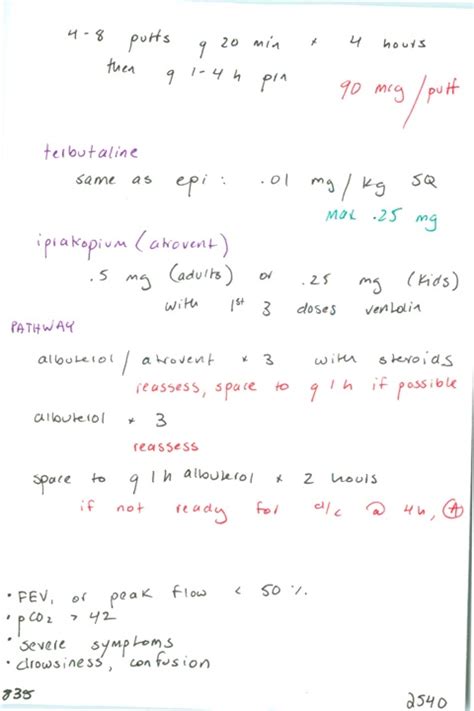 4-8 puffs q 20 min x 4 hours
then q 1-4 h prn
90 mcg/puff
terbutaline
same as epi : .01 mg/kg SQ
max .25 mg
ipratropium (atrovent)
.5 mg (adults) or .25 mg (kids)
with 1st 3 doses ventolin
PATHWAY
albuterol / atrovent x 3 with steroids
reassess, space to q 1 h if possible
albuterol x 3
reassess
space to q 1 h albuterol x 2 hours
if not ready for d/c @ 4h, Ⓐ
• FEV, or peak flow < 50 %.
• pCO2 > 42
• severe symptoms
• drowsiness, confusion
835
2540